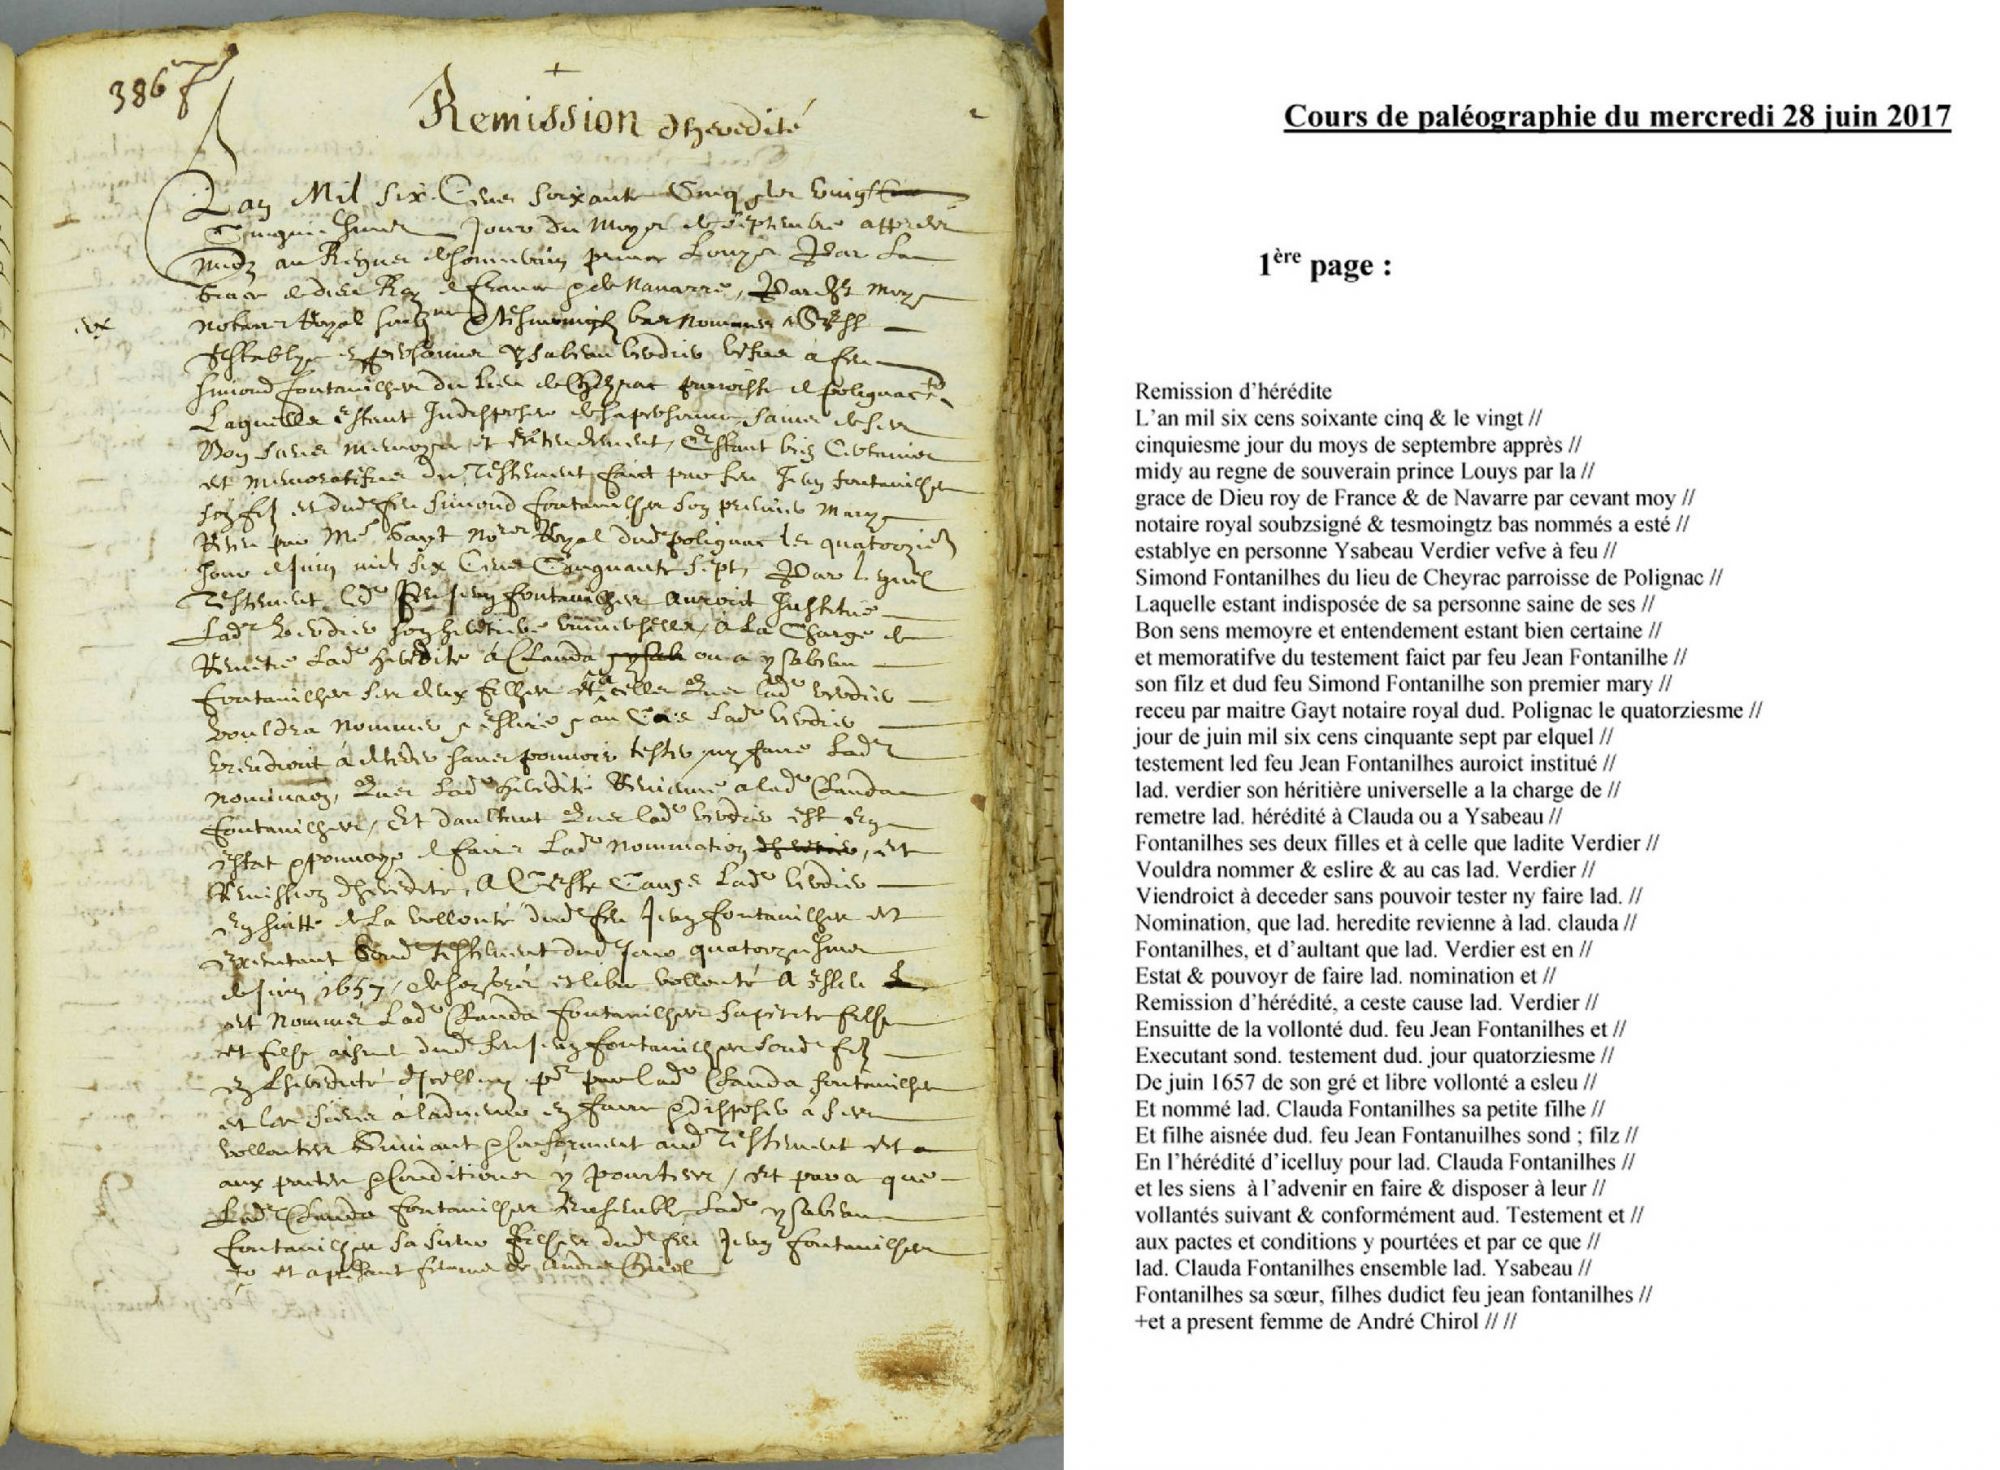 386
Remission d'heredité
L'an Mil six Cens soixante Cinq & le vingt
Cinquiesme Jour du Moys de septembre apprès
midy au Regne de souverain prince Louys Par La
Grace de dieu Roy de france & de Navarre, Pardevant Moy
notaire Royal soubzsigné & tesmoingtz bas Nommés a Esté
Establye en personne Ysabeau verdier vefve à feu
Simond fontanilhes du Lieu de Cheyrac parroisse de polignac +
Laquelle Estant Indisposée de sa personne saine de ses
Bon sens memoyre et Entendement, Estant bien Certaine
et memoratifve du Testement faict par feu Jean fontanilhe
son filz et dud feu Simond fontanilhe son premier mary
Receu par Me Gayt Nore Royal dud polignac Le quatorziesme
Jour de Juin mil six Cens Cinquante sept, Par Lequel
Testement Led feu Jean fontanilhes auroict Institué
Lad Verdier son heretiere universelle, A La Charge de
Remetre Lad heredité à Clauda ou a ysabeau
fontanilhes ses deux filhes et à celle Que lad verdier
vouldra nommer & Eslire & au Cas Lad verdier
viendroict à deceder sans pouvoir tester ny faire Lad
nominaon, Que Lad heredité Revienne a lad Clauda
fontanilhes, Et d'aultant Que lad verdier est En
Estat & pouvoyr de faire Lad nomination, et
Remission d'heredité, A Ceste Cause Lad verdier
En suitte de La vollonté dud feu Jean fontanilhes et
Executant Sond testement dud Jour quatorziesme
de Juin 1657, de son gré et libre vollonté A Esleu
et Nommé Lad Clauda fontanilhes sa petite filhe
et filhe aisnée dud feu Jean fontanilhes sond filz
En L'heredité d'Icelluy pr par lad Clauda fontanilhes
et les siens à l'advenir En faire & disposer à leurs
vollontés Suivant & Conforment aud Testement et
aux pactes & Conditions y pourtées, Et par ce que
Lad Clauda fontanilhes Ensemble Lad ysabeau
fontanilhes sa sœur filhes dud feu Jean fontanilhes
+ et a presant femme de André Chirol
Cours de paléographie du mercredi 28 juin 2017
1ère page :
Remission d'hérédite
L'an mil six cens soixante cinq & le vingt //
cinquiesme jour du moys de septembre apprès //
midy au regne de souverain prince Louys par la //
grace de Dieu roy de France & de Navarre par cevant moy //
notaire royal soubzsigné & tesmoingtz bas nommés a esté //
establye en personne Ysabeau Verdier vefve à feu //
Simond Fontanilhes du lieu de Cheyrac parroisse de Polignac //
Laquelle estant indisposée de sa personne saine de ses //
Bon sens memoyre et entendement estant bien certaine //
et memoratifve du testement faict par feu Jean Fontanilhe //
son filz et dud feu Simond Fontanilhe son premier mary //
receu par maitre Gayt notaire royal dud. Polignac le quatorziesme //
jour de juin mil six cens cinquante sept par elquel //
testement led feu Jean Fontanilhes auroict institué //
lad. verdier son héritière universelle a la charge de //
remetre lad. hérédité à Clauda ou a Ysabeau //
Fontanilhes ses deux filles et à celle que ladite Verdier //
Vouldra nommer & eslire & au cas lad. Verdier //
Viendroict à deceder sans pouvoir tester ny faire lad. //
Nomination, que lad. heredite revienne à lad. clauda //
Fontanilhes, et d'aultant que lad. Verdier est en //
Estat & pouvoyr de faire lad. nomination et //
Remission d'hérédité, a ceste cause lad. Verdier //
Ensuitte de la vollonté dud. feu Jean Fontanilhes et //
Executant sond. testement dud. jour quatorziesme //
De juin 1657 de son gré et libre vollonté a esleu //
Et nommé lad. Clauda Fontanilhes sa petite filhe //
Et filhe aisnée dud. feu Jean Fontanuilhes sond ; filz //
En l'hérédité d'icelluy pour lad. Clauda Fontanilhes //
et les siens à l'advenir en faire & disposer à leur //
vollantés suivant & conformément aud. Testement et //
aux pactes et conditions y pourtées et par ce que //
lad. Clauda Fontanilhes ensemble lad. Ysabeau //
Fontanilhes sa sœur, filhes dudict feu jean fontanilhes //
+et a present femme de André Chirol // //